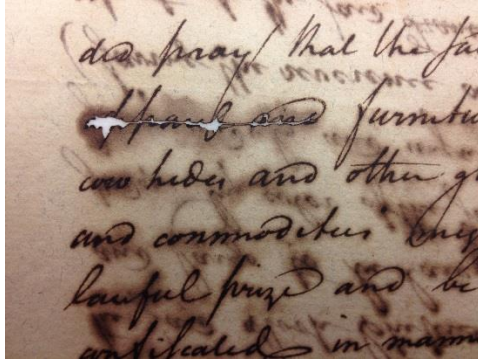 did pray that the
apparel and furnitu
cow hides and other g
and commodities
lawful prize and be
confiscated in mann